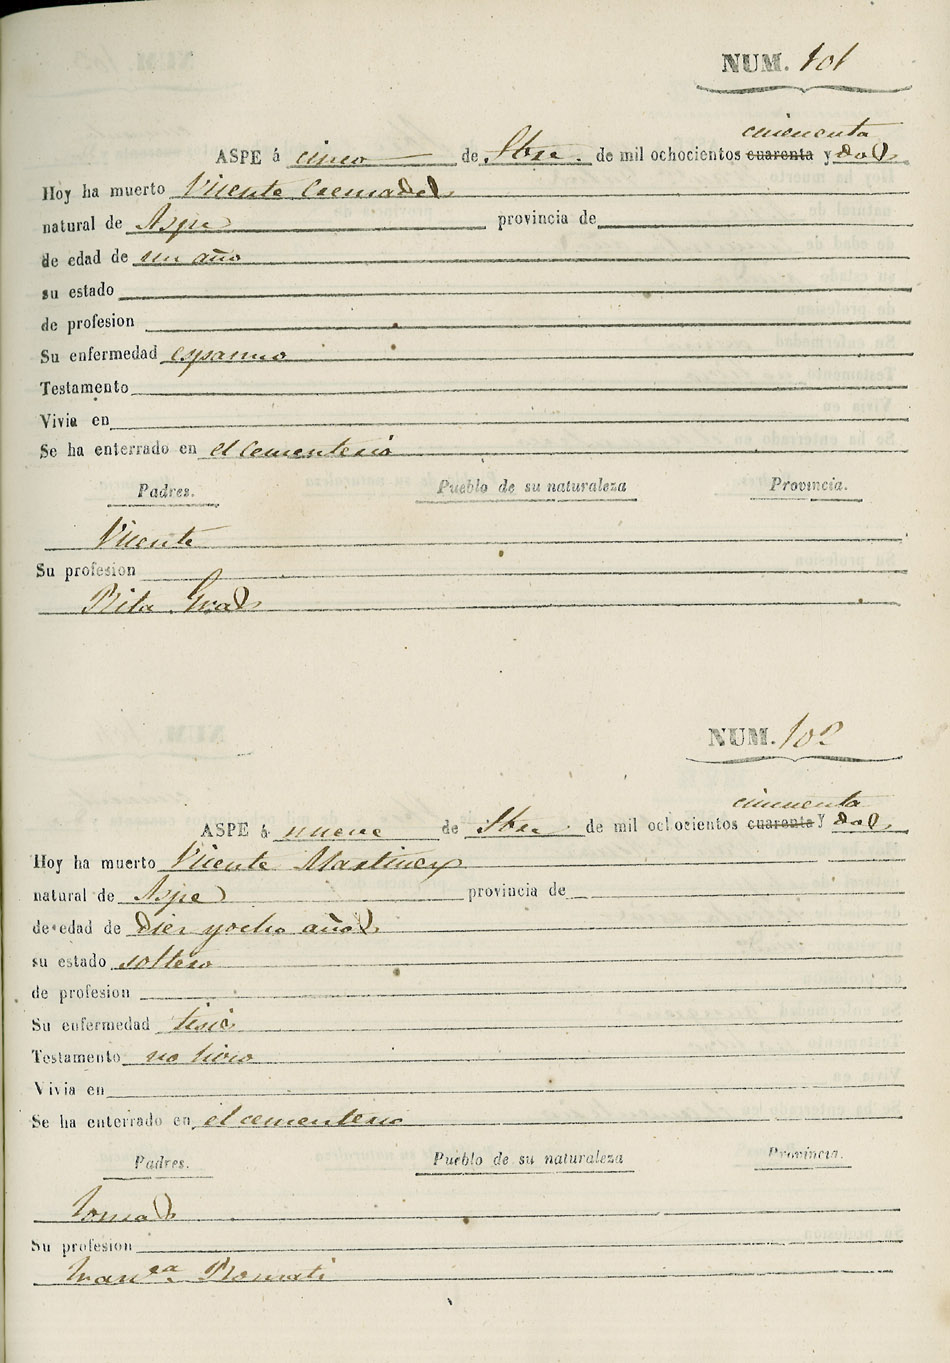 NUM. 101
cincuenta
ASPE á cinco de Sbre. de mil ochocientos cuarenta y dos
Hoy ha muerto Vicente Cremades
natural de Aspe provincia de
de edad de un año
su estado
de profesion
Su enfermedad espasmo
Testamento
Vivia en
Se ha enterrado en el cementerio
Padres. Pueblo de su naturaleza Provincia.
Vicente
Su profesion
Rita Gras
NUM. 102
cincuenta
ASPE á nueve de Sbre. de mil ochocientos cuarenta y dos
Hoy ha muerto Vicente Martinez
natural de Aspe provincia de
de edad de diez y ocho años
su estado soltero
de profesion
Su enfermedad tisis
Testamento no hizo
Vivia en
Se ha enterrado en el cementerio
Padres. Pueblo de su naturaleza Provincia.
Tomas
Su profesion
Fran.ca